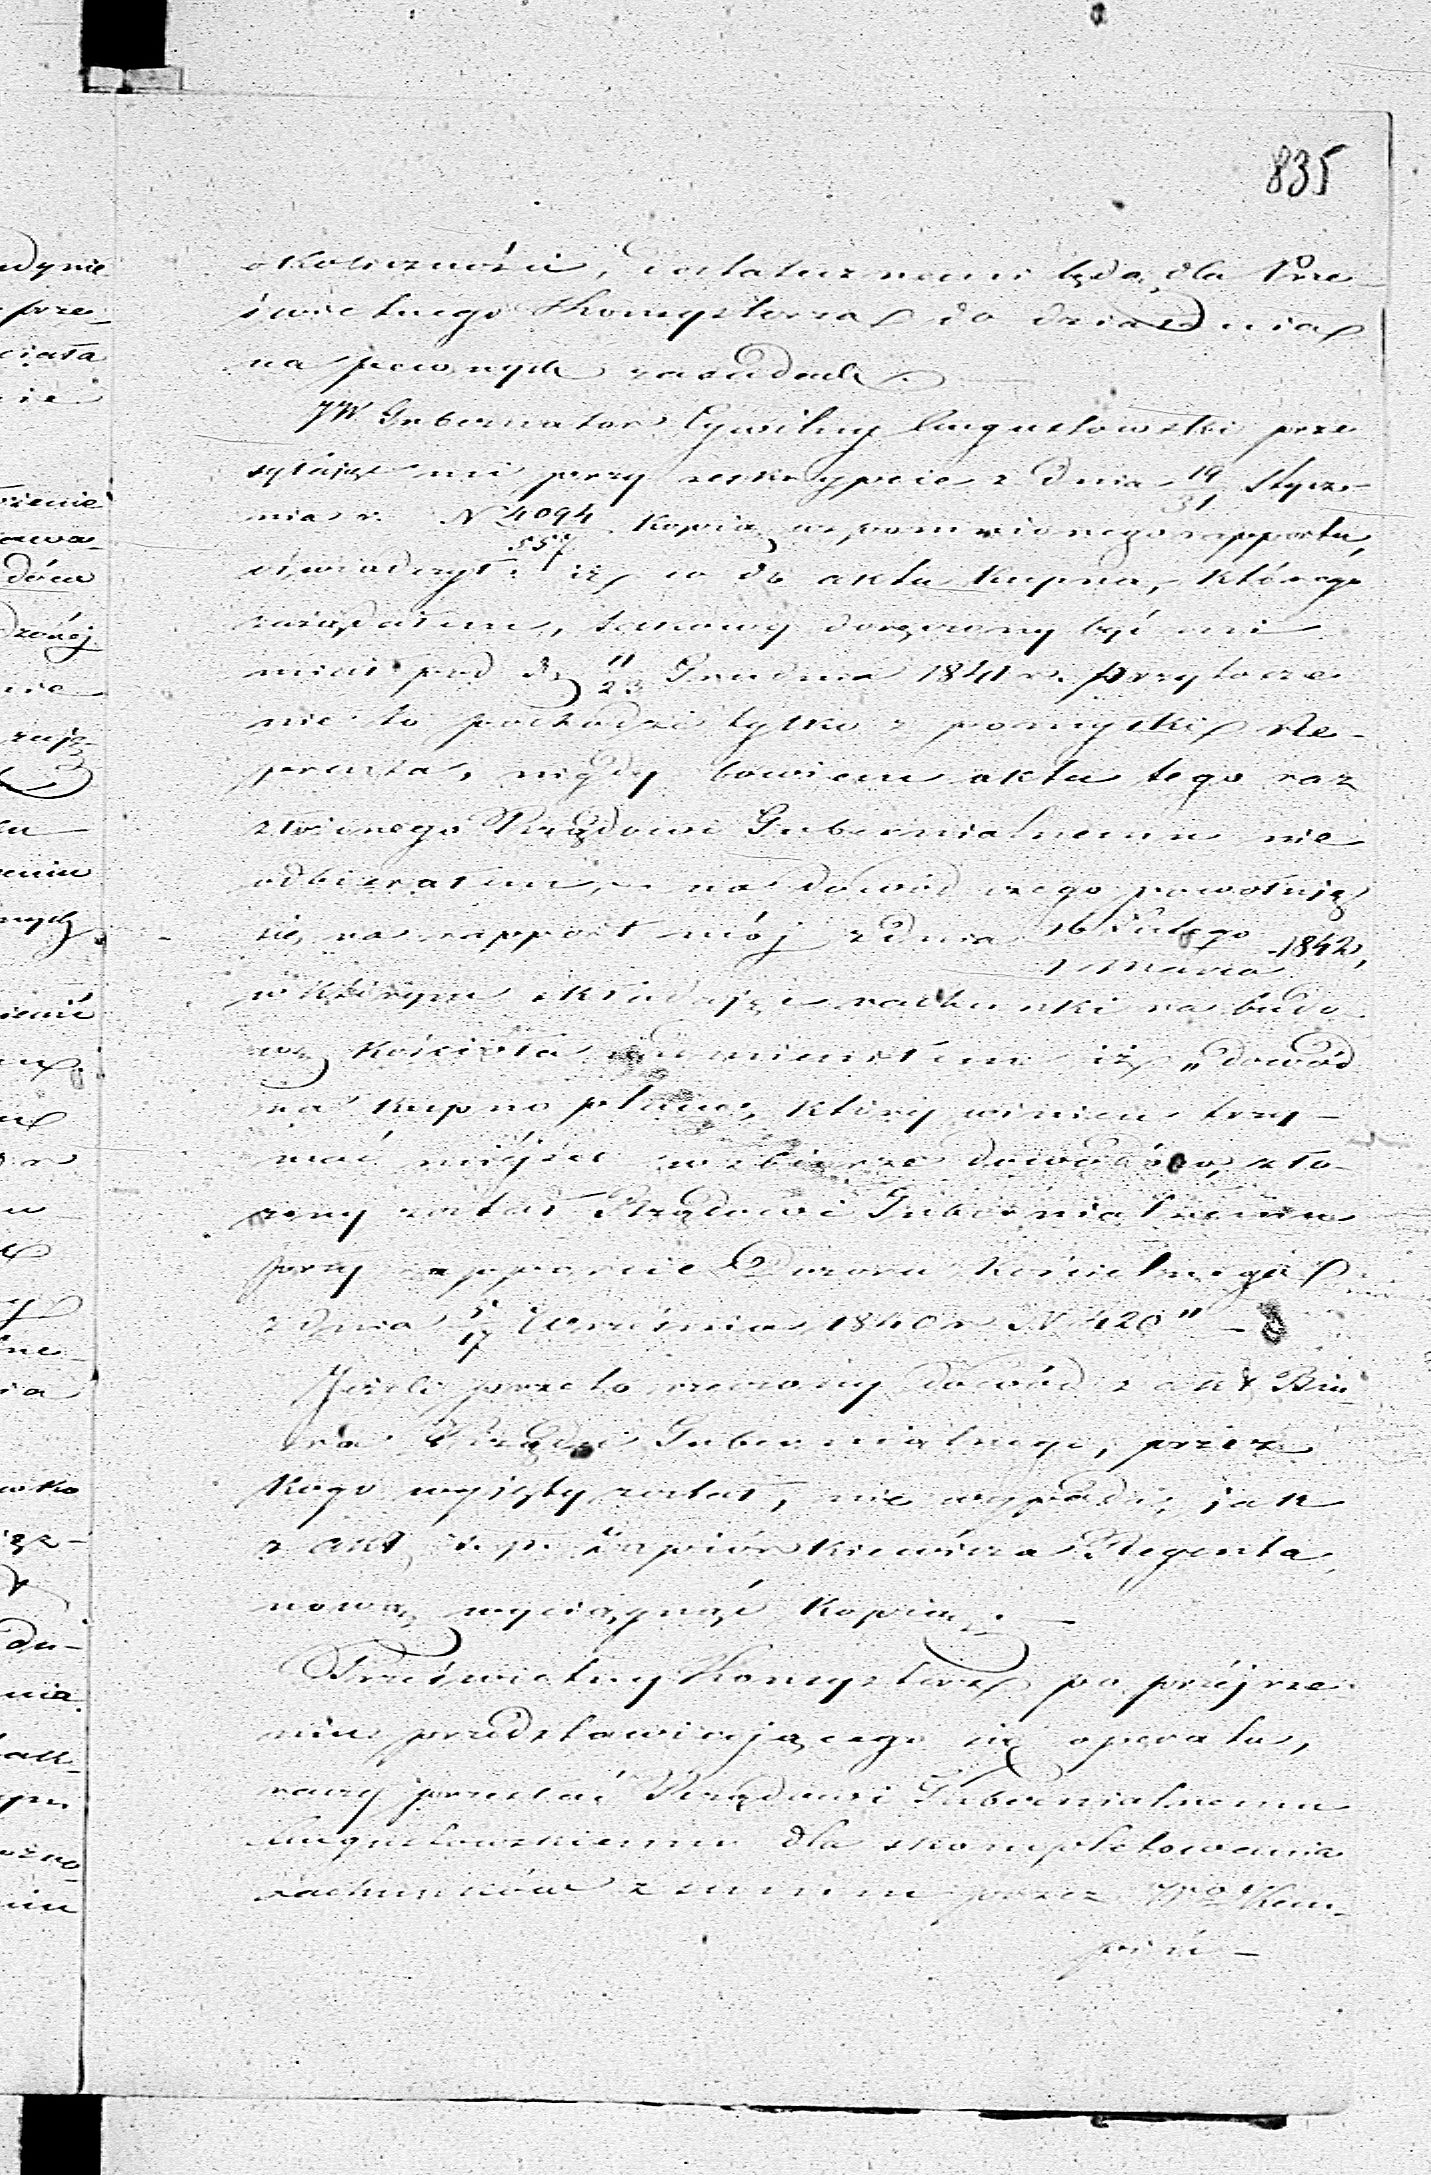 835
okoliczności, dostatecznemi będą dla Prze-
świetnego Konsystorza do działania
na pewnych zasadach.
JW. Gubernator Cywilny Augustowski prze
syłając mi przy reskrypcie z dnia 19/31 Stycz-
nia r. N 4094/557 kopią wspomnionego rapportu,
oświadczył: iż co do aktu kupna, którego
zażądałem, takowy doręczony być mi
miał pod d. 11/23 Grudnia 1841 r. Przytocze
nie to pochodzi tylko z pomyłki Re-
ferenta, nigdy bowiem aktu tego raz
złożonego Rządowi Gubernialnemu nie
odbierałem, na dowód czego powołuję
się na rapport mój z dnia 16 Lutego/1 Marca 1842,
w którym składając rachunki na budo
wę Kościoła nadmieniłem iż „dowód
na kupno placu, który winien trzy-
mać miejsce w zbiorze dowodów, zło-
żony został Rządowi Gubernialnemu
przy rapporcie Dozoru Kościelnego
z dnia 5/17 Września 1840 r N 420" -
Jeżeli przeto rzeczony dowód z akt Biu
ra Rządu Gubernialnego, przez
kogo wyjęty został, nie wypada, jak
z akt ś. p. Zapiórkiewicza Regenta,
nową wyciągnąć kopią. —
Prześwietny Konsystorz po przejrze
niu przedstawiającego się operatu,
raczy przesłać Rządowi Gubernialnemu
Augustowskiemu dla skompletowania
rachunków z summ przez